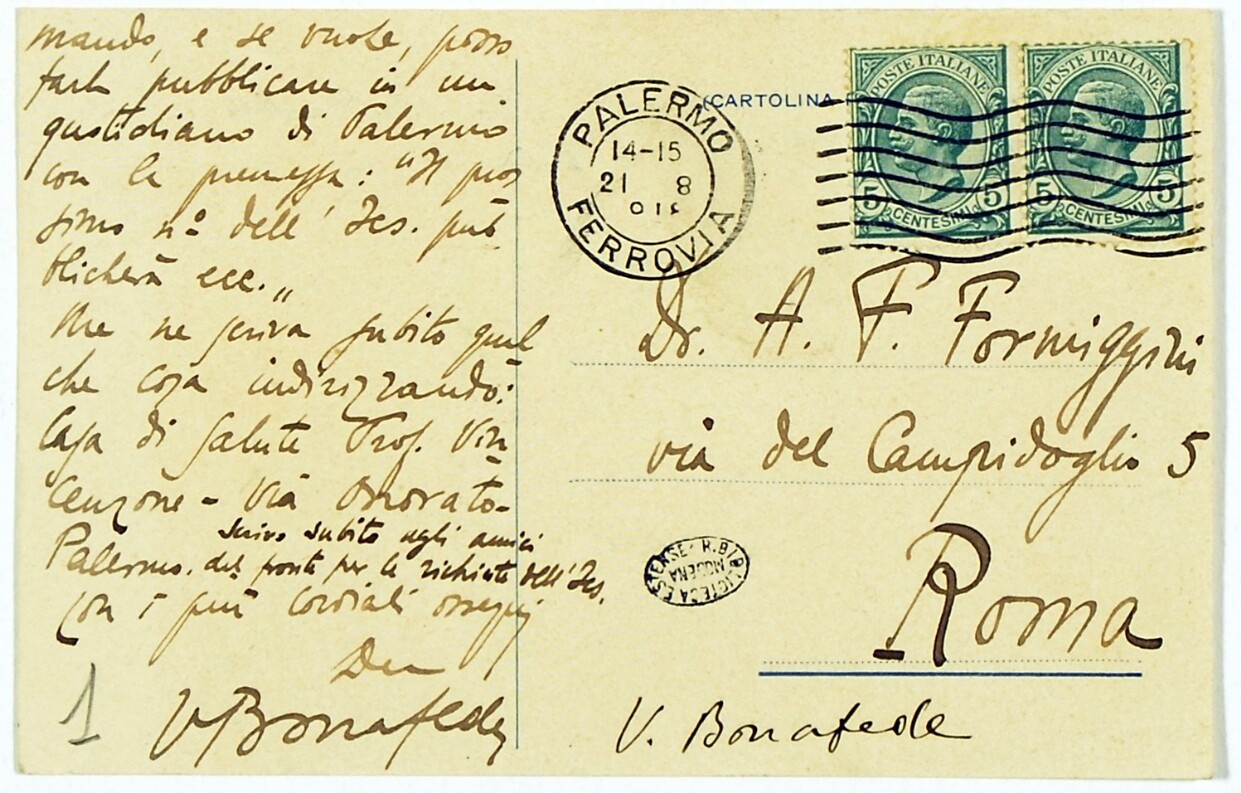 mando, e se vuole, posso
farle pubblicare in un
quotidiano di Palermo
con la premessa: "Il pros
simo n° dell' Ics. pub
blicherà ecc. „
Me ne scriva subito qual
che cosa indirizzando:
Casa di Salute Prof. Vin
cenzone - Via Onorato -
Palermo.
scrivo subito agli amici
del fronte per le richieste dell'Ics.
Con i più cordiali ossequi
Dev
V Bonafede
1
(CARTOLINA
PALERMO
14-15
21 8
FERROVIA
POSTE ITALIANE
5 CENTESIMI 5
POSTE ITALIANE
5 CENTESIMI 5
Dr. A. F. Formiggini
via del Campidoglio 5
R. BIBLIOTECA ESTENSE
MODENA
Roma
V. Bonafede